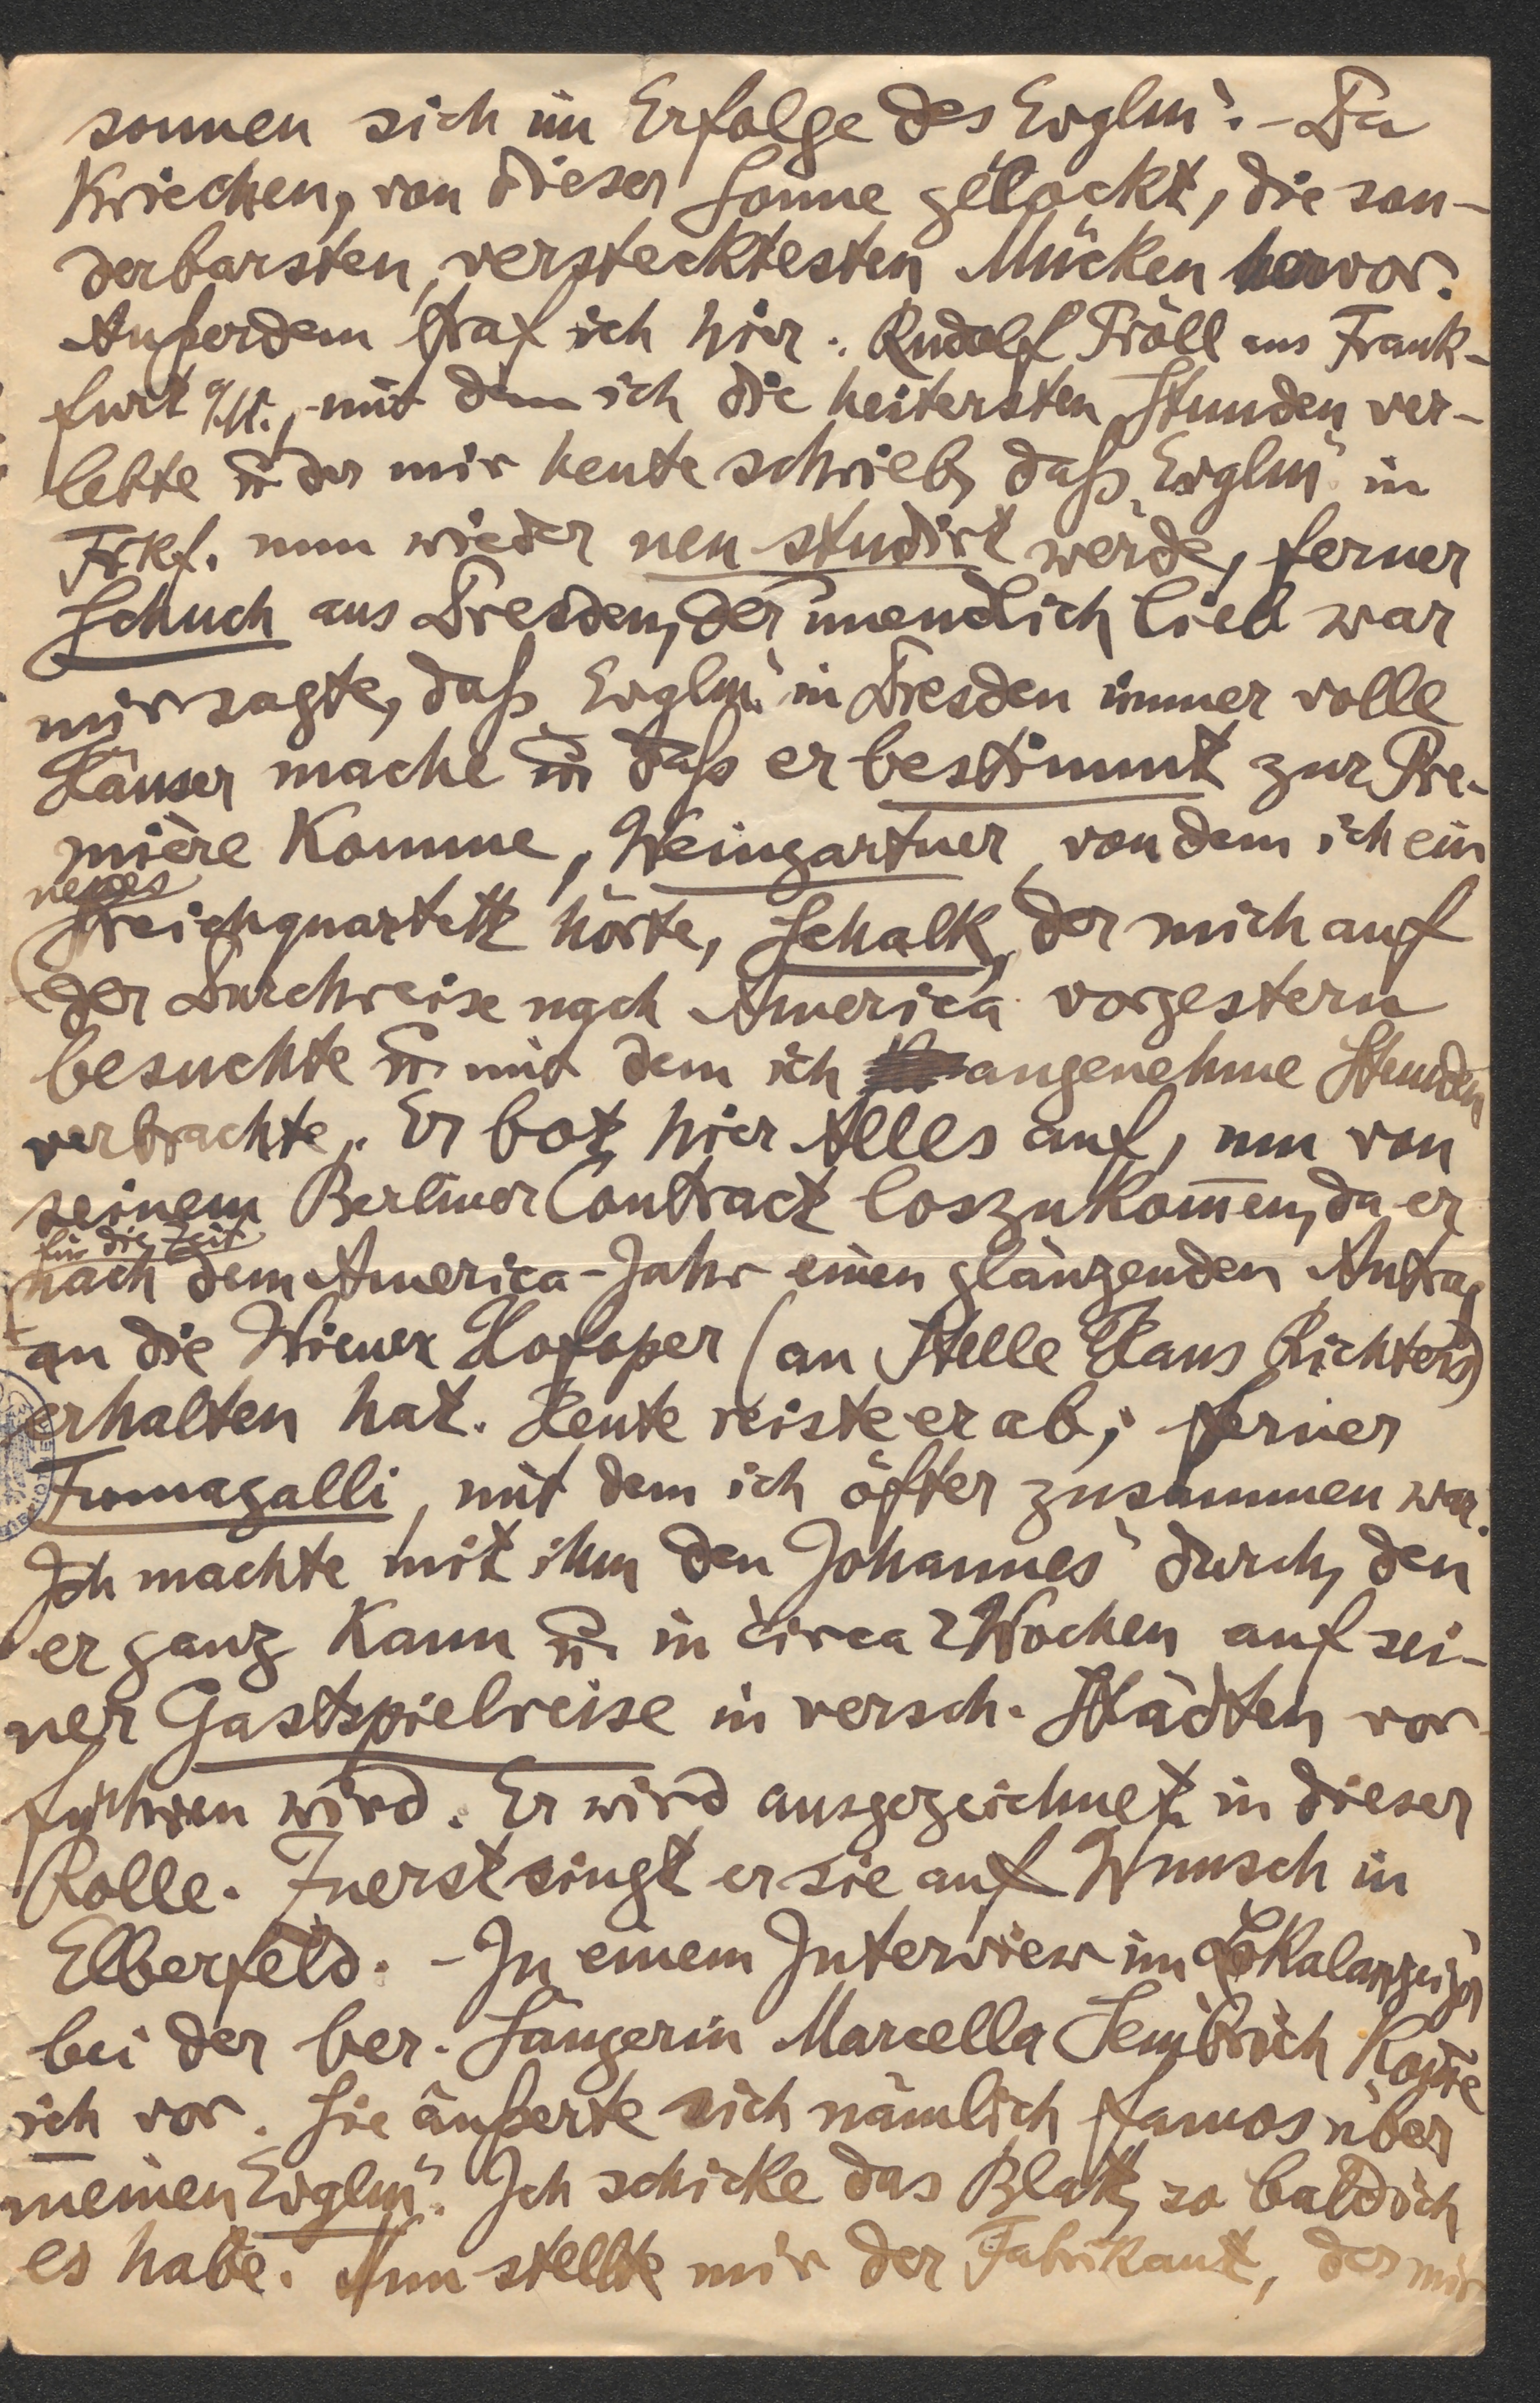 sonnen sich im Erfolge des „Evglm“. – Da
kriechen, von dieser Sonne gelockt, die son-
derbarsten, verstecktesten Mücken hervor.
Außerdem traf ich hier: Rudolf Pröll aus Frank-
furt a/M., mit dem ich die heitersten Stunden ver-
lebte u. der mir heute schrieb, daß „Evglm“ in
Frkf. nun wieder neu studirt werde, ferner
Schuch aus Dresden, der unendlich lieb war
mir sagte, daß „Evglm“ in Dresden immer volle
Häuser mache u. daß er bestimmt zur Pre-
mière komme, Weingartner, von dem ich ein
neues
Streichquartett hörte, Schalk, der mich auf
der Durchreise nach America vorgestern
besuchte u. mit dem ich angenehme Stunden
verbrachte. Er bot hier Alles auf, um von
seinem Berliner Contract loszukom̅en, da er
für die Zeit
nach dem America-Jahr einen glänzenden Antrag
an die Wiener Hofoper (an Stelle Hans Richters)
erhalten hat. Heute reiste er ab; ferner
Fumagalli, mit dem ich öfter zusammen war.
Ich machte mit ihm den „Johannes“ durch, den
er ganz kann u. in circa 2 Wochen auf sei-
ner Gastspielreise in versch. Städten vor-
führen wird. Er wird ausgezeichnet in dieser
Rolle. Zuerst singt er sie auf Wunsch in
Elberfeld. – In einem Interview im Lokalanzeiger
bei der ber. Sängerin Marcella Sembrich kom̅e
ich vor. Sie äußerte sich nämlich famos über
meinen „Evglm“. Ich schicke das Blatt, so bald ich
es habe. Nun stellte mir der Fabrikant, der mir